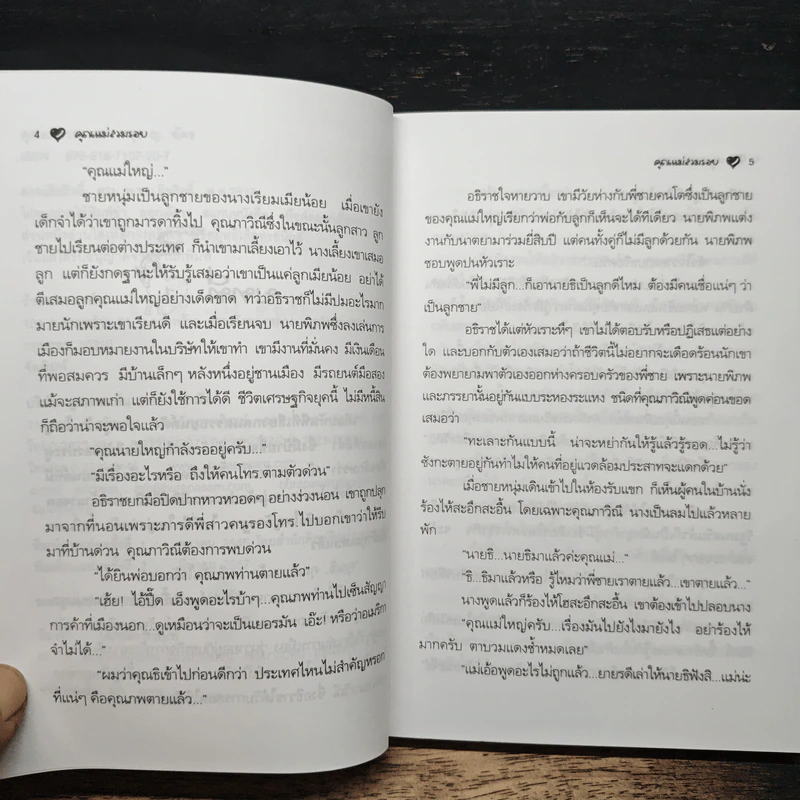 4 คุณแม่สวมรอย
"คุณแม่ใหญ่..."
ชายหนุ่มเป็นลูกชายของนางเรียมเมียน้อย เมื่อเขายัง
เด็กจำได้ว่าเขาถูกมารดาทิ้งไป คุณภาวิณีซึ่งในขณะนั้นลูกสาว ลูก
ชายไปเรียนต่อต่างประเทศ ก็นำเขามาเลี้ยงเอาไว้ นางเลี้ยงเขาเสมอ
ลูก แต่ก็ยังกดฐานะให้รับรู้เสมอว่าเขาเป็นแค่ลูกเมียน้อย อย่าได้
ตีเสมอลูกคุณแม่ใหญ่อย่างเด็ดขาด ทว่าอธิราชก็ไม่มีปมอะไรมาก
มายนักเพราะเขาเรียนดี และเมื่อเรียนจบ นายพิภพซึ่งลงเล่นการ
เมืองก็มอบหมายงานในบริษัทให้เขาทำ เขามีงานที่มั่นคง มีเงินเดือน
ที่พอสมควร มีบ้านเล็กๆ หลังหนึ่งอยู่ชานเมือง มีรถยนต์มือสอง
แม้จะสภาพเก่า แต่ก็ยังใช้การได้ดี ชีวิตเศรษฐกิจยุคนี้ ไม่มีหนี้สิน
ก็ถือว่าน่าจะพอใจแล้ว
"คุณนายใหญ่กำลังรออยู่ครับ..."
"มีเรื่องอะไรหรือ ถึงให้คนโทร.ตามตัวด่วน"
อธิราชยกมือปิดปากหาวหวอดๆ อย่างง่วงนอน เขาถูกปลุก
มาจากที่นอนเพราะภารดีพี่สาวคนรองโทร.ไปบอกเขาว่าให้รีบ
มาที่บ้านด่วน คุณภาวิณีต้องการพบด่วน
"ได้ยินพ่อบอกว่า คุณภพท่านตายแล้ว"
"เฮ้ย! ไอ้ปื๊ด เอ็งพูดอะไรบ้าๆ...คุณภพท่านไปเซ็นสัญญา
การค้าที่เมืองนอก...ดูเหมือนว่าจะเป็นเยอรมัน เอ๊ะ! หรือว่าอเมริกา
จำไม่ได้..."
"ผมว่าคุณธิเข้าไปก่อนดีกว่า ประเทศไหนไม่สำคัญหรอก
ที่แน่ๆ คือคุณภพตายแล้ว..."
คุณแม่สวมรอย 5
อธิราชใจหายวาบ เขามีวัยห่างกับพี่ชายคนโตซึ่งเป็นลูกชาย
ของคุณแม่ใหญ่เรียกว่าพ่อกับลูกก็เห็นจะได้ทีเดียว นายพิภพแต่ง
งานกับนาตยามาร่วมยี่สิบปี แต่คนทั้งคู่ก็ไม่มีลูกด้วยกัน นายพิภพ
ชอบพูดปนหัวเราะ
"พี่ไม่มีลูก...ก็เอานายธิเป็นลูกดีไหม ต้องมีคนเชื่อแน่ๆ ว่า
เป็นลูกชาย"
อธิราชได้แต่หัวเราะหึๆ เขาไม่ได้ตอบรับหรือปฏิเสธแต่อย่าง
ใด และบอกกับตัวเองเสมอว่าถ้าชีวิตนี้ไม่อยากจะเดือดร้อนนักเขา
ต้องพยายามพาตัวเองออกห่างครอบครัวของพี่ชาย เพราะนายพิภพ
และภรรยานั้นอยู่กันแบบระหองระแหง ชนิดที่คุณภาวิณีพูดค่อนขอด
เสมอว่า
"ทะเลาะกันแบบนี้ น่าจะหย่ากันให้รู้แล้วรู้รอด...ไม่รู้ว่า
ชังกะตายอยู่กันทำไมให้คนที่อยู่แวดล้อมประสาทจะแดกด้วย"
เมื่อชายหนุ่มเดินเข้าไปในห้องรับแขก ก็เห็นผู้คนในบ้านนั่ง
ร้องไห้สะอึกสะอื้น โดยเฉพาะคุณภาวิณี นางเป็นลมไปแล้วหลาย
พัก
"นายธิ...นายธิมาแล้วค่ะคุณแม่..."
"ธิ...ธิมาแล้วหรือ รู้ไหมว่าพี่ชายเราตายแล้ว...เขาตายแล้ว..."
นางพูดแล้วก็ร้องไห้โฮสะอึกสะอื้น เขาต้องเข้าไปปลอบนาง
"คุณแม่ใหญ่ครับ...เรื่องมันไปยังไงมายังไง อย่าร้องไห้
มากครับ ตาบวมแดงช้ำหมดเลย"
"แม่เอ้อพูดอะไรไม่ถูกแล้ว...ยายรดีเล่าให้นายธิฟังสิ...แม่น่ะ